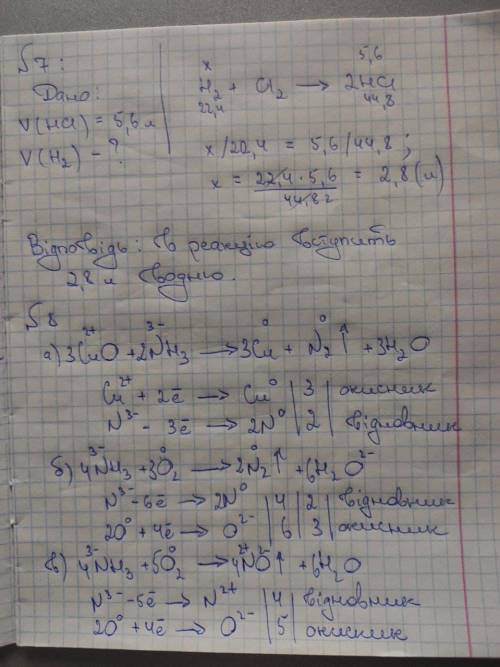 №7:
Дано:
V(HCl) = 5,6 л
V(H₂) - ?
x 5,6
H₂ + Cl₂ → 2HCl
22,4 44,8
x/22,4 = 5,6/44,8;
x = 22,4·5,6 / 44,8 = 2,8 (л)
Відповідь: в реакцію вступить
2,8 л водню.
№8
2+ 3- 0 0
а) 3CuO + 2NH₃ → 3Cu + N₂↑ + 3H₂O
Cu²⁺ + 2ē → Cu⁰ | 3 | окисник
N³⁻ - 3ē → 2N⁰ | 2 | відновник
3- 0 0 2-
б) 4NH₃ + 3O₂ → 2N₂↑ + 6H₂O
N³⁻ - 6ē → 2N⁰ | 4 | 2 | відновник
2O⁰ + 4ē → O²⁻ | 6 | 3 | окисник
3- 0 2+ 2-
в) 4NH₃ + 5O₂ → 4NO↑ + 6H₂O
N³⁻ - 5ē → N²⁺ | 4 | відновник
2O⁰ + 4ē → O²⁻ | 5 | окисник